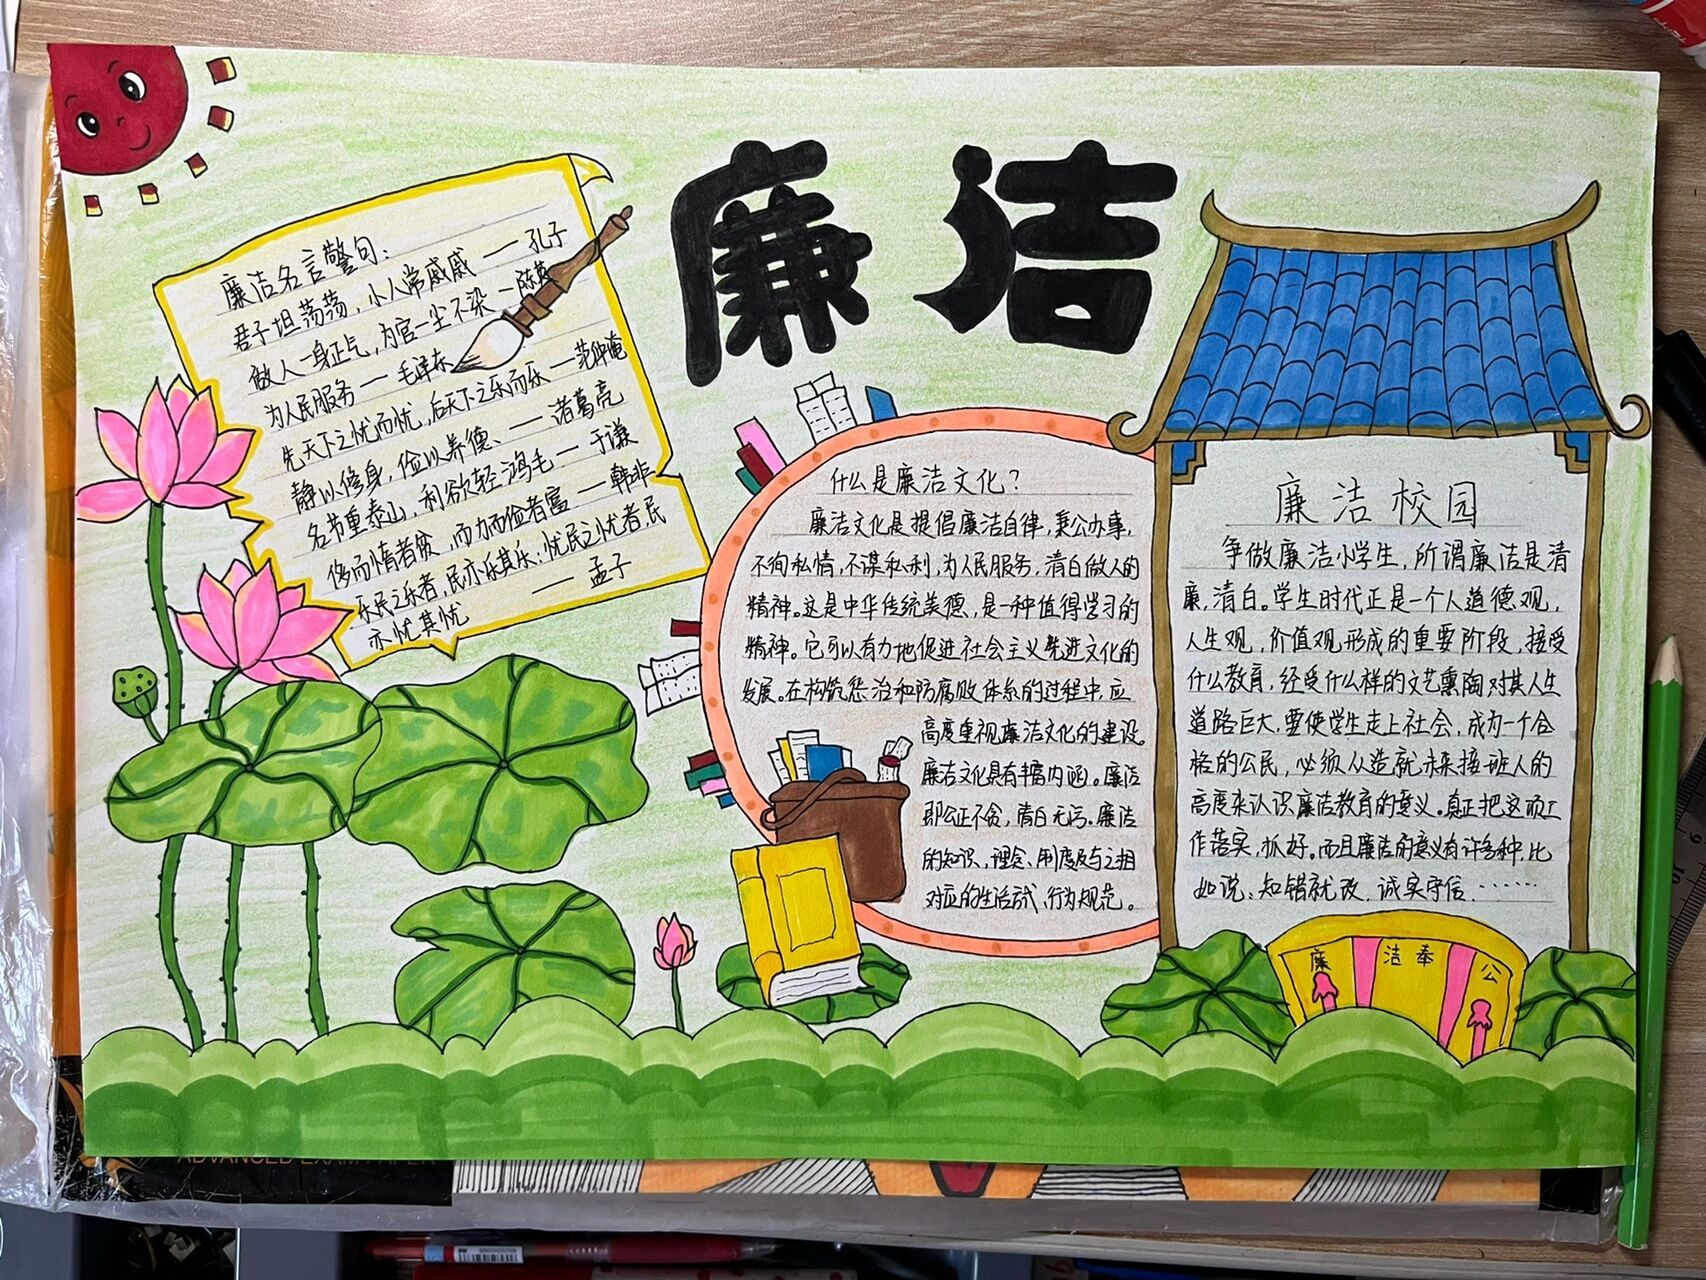 廉洁
廉洁名言警句：
君子坦荡荡，小人常戚戚 —— 孔子
做人一身正气，为官一尘不染 — 陈英
为人民服务 — 毛泽东
先天下之忧而忧，后天下之乐而乐 — 范仲淹
静以修身，俭以养德、—— 诸葛亮
名节重泰山，利欲轻鸿毛 — 于谦
侈而惰者贫，而力而俭者富 — 韩非
乐民之乐者，民亦乐其乐；忧民之忧者，民
亦忧其忧 —— 孟子
什么是廉洁文化？
廉洁文化是提倡廉洁自律，秉公办事，
不徇私情，不谋私利，为人民服务，清白做人的
精神。这是中华传统美德，是一种值得学习的
精神。它可以有力地促进社会主义先进文化的
发展。在构筑惩治和防腐败体系的过程中，应
高度重视廉洁文化的建设。
廉洁文化具有丰富内涵。廉洁
即公正不贪，清白无污。廉洁
的知识、理念、制度及与之相
对应的生活方式、行为规范。
廉洁校园
争做廉洁小学生，所谓廉洁是清
廉，清白。学生时代正是一个人道德观，
人生观，价值观形成的重要阶段，接受
什么教育，经受什么样的文艺熏陶对其人生
道路巨大，要使学生走上社会，成为一个合
格的公民，必须从造就未来接班人的
高度来认识廉洁教育的意义。真正把这项工
作落实，抓好。而且廉洁的意义有许多种，比
如说：知错就改，诚实守信……
廉洁奉公
ADVANCED EXAM PAPER